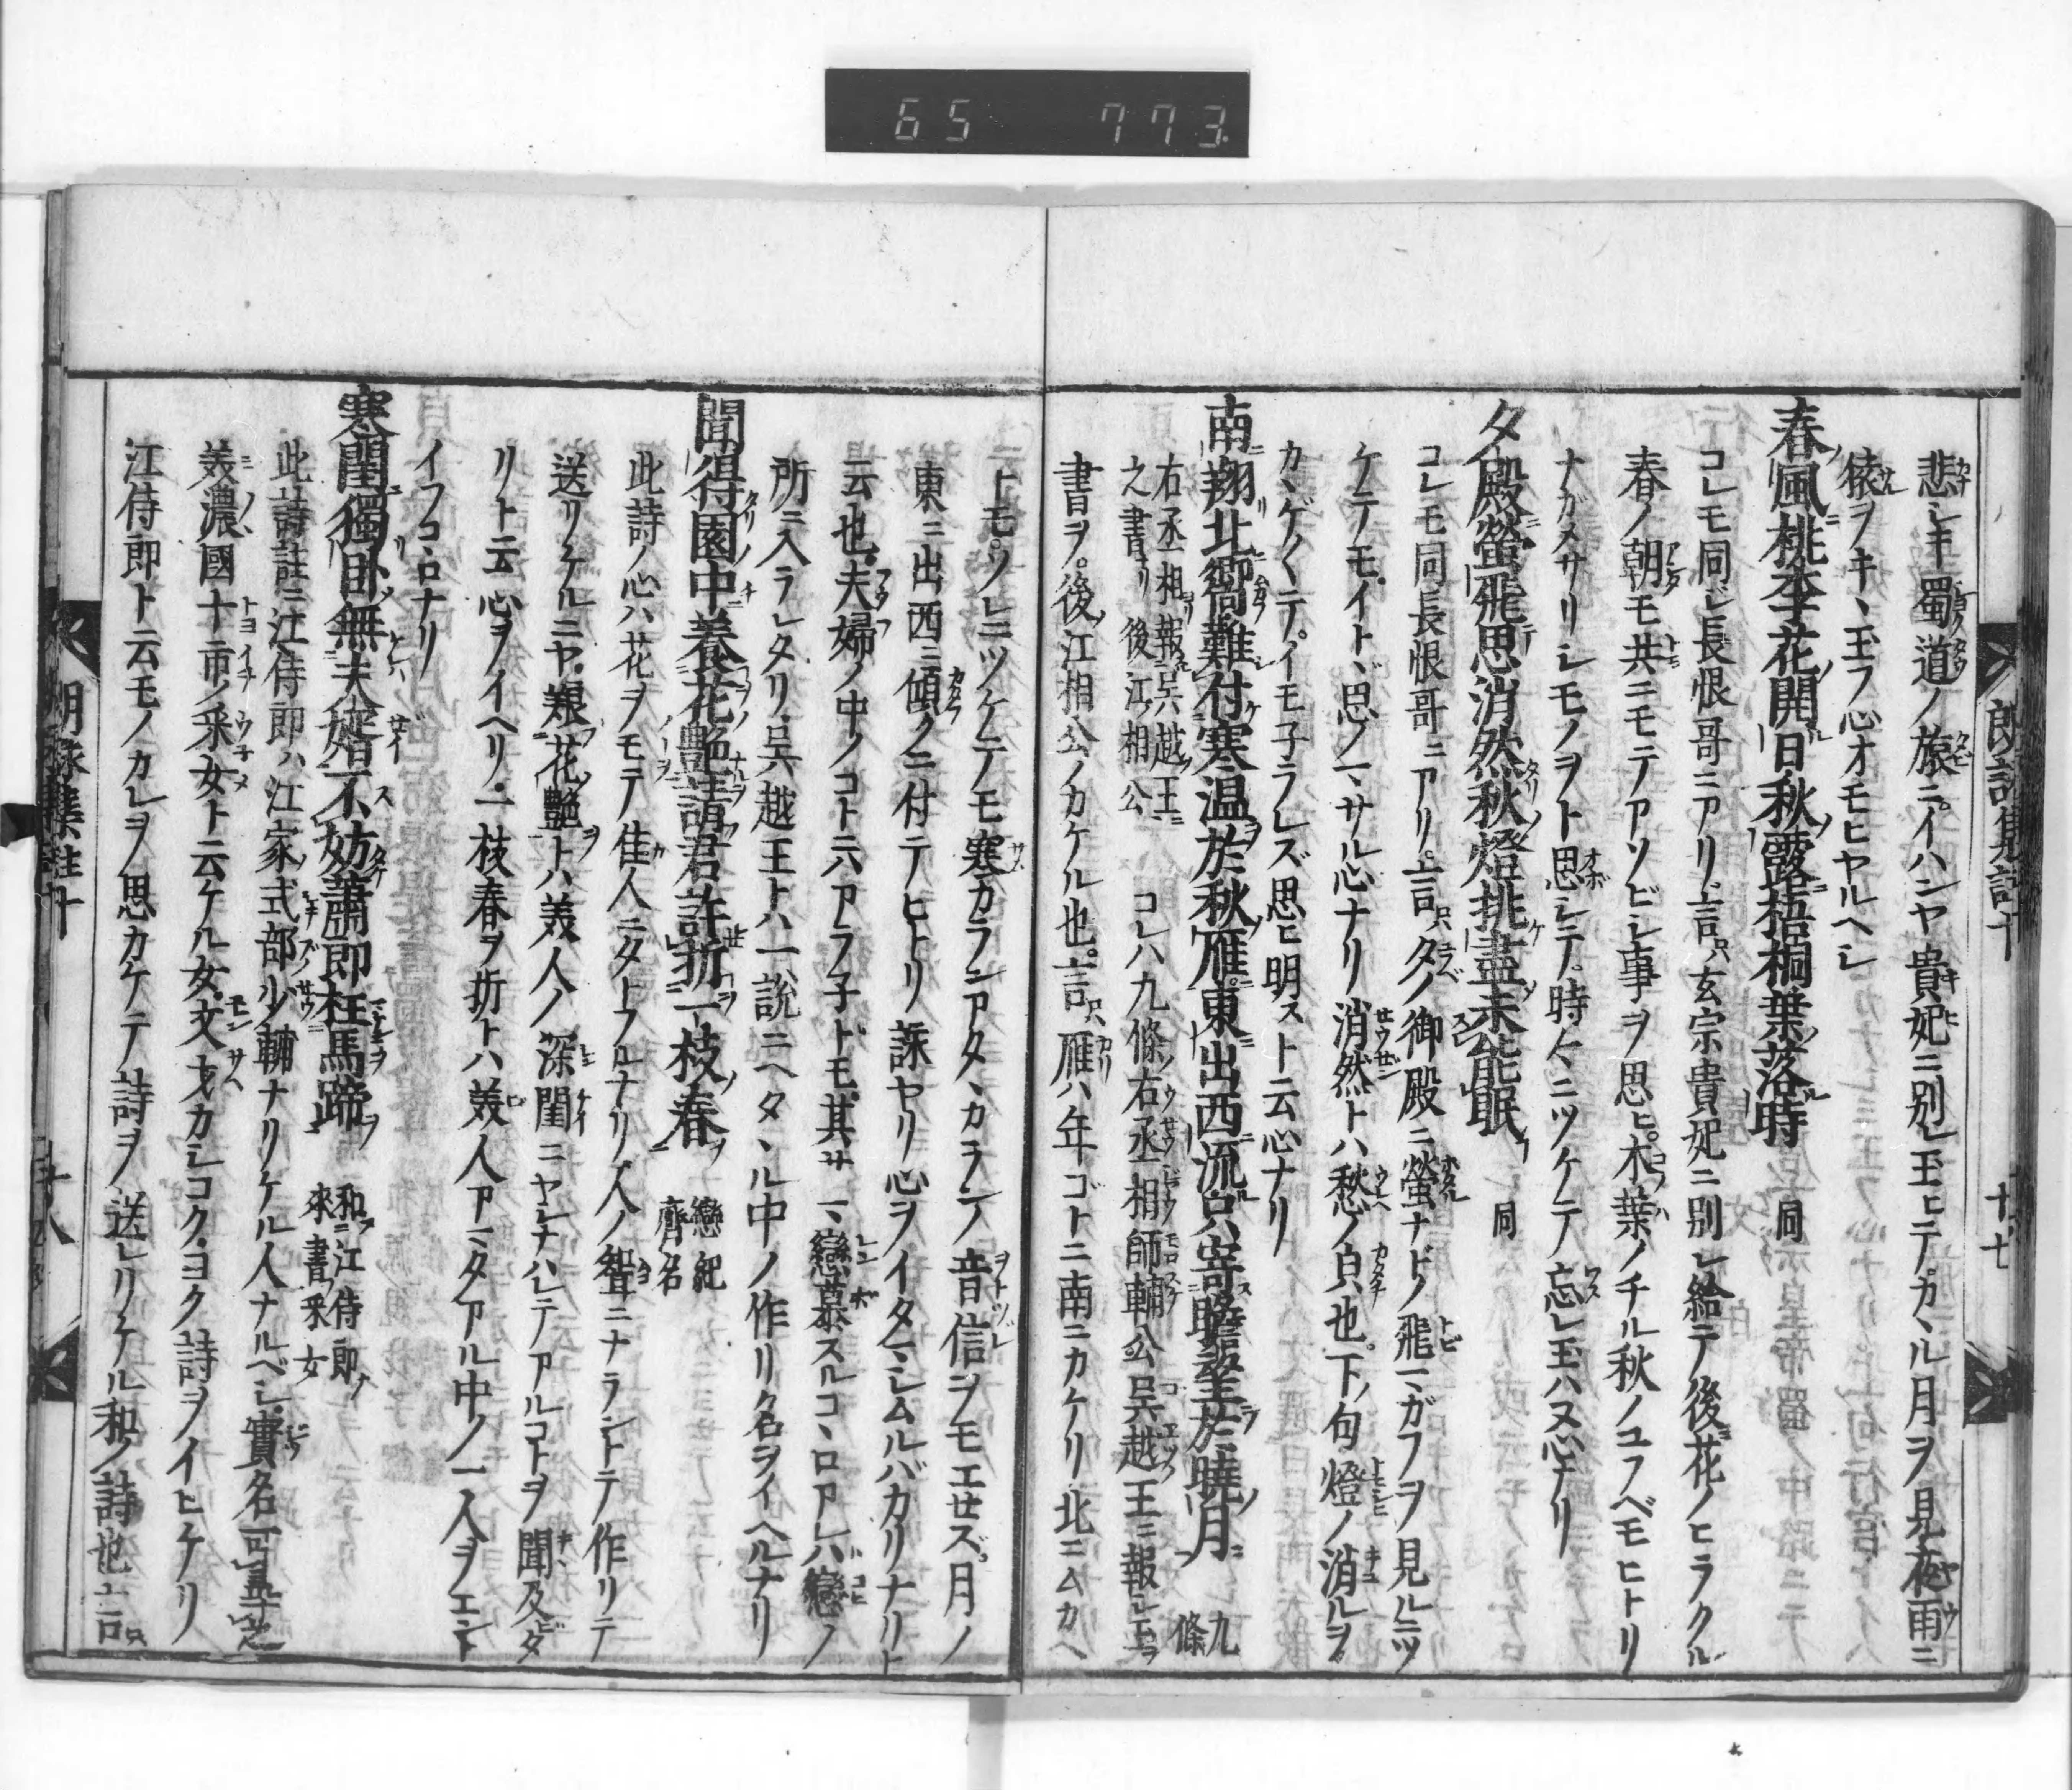 65 773
悲シキ蜀道ノ旅ニ。イハンヤ貴妃ニ別レ玉ヒテ。カヽル月ヲ見夜雨ニ
猿ヲキヽ玉フ心オモヒヤルヘシ
春風桃李花開日秋露梧桐葉落時 同
コレモ同ジ長恨哥ニアリ言只玄宗貴妃ニ別レ給テ後花ノヒラクル
春ノ朝モ共ニモテアソビシ事ヲ思ヒ。木葉ノチル秋ノユフベモヒトリ
ナガメサリシモノヲト思シテ。時々ニツケテ忘レ玉ハヌ心ナリ
夕殿螢飛思消然秋燈挑盡未能眠 同
コレモ同長恨哥ニアリ。言只夕ノ御殿ニ螢ナドノ飛マガフヲ見ルニツ
ケテモ。イトヾ思ノマサル心ナリ消然トハ愁ノ皃也。下ノ句燈ノ消ルヲ
カヽゲ〳〵テ。イモ子ラレズ思ヒ明スト云心ナリ
南翔北嚮難付寒温於秋雁東出西流只寄瞻望於曉月 九條
右丞相報呉越王之書 後江相公
コレハ九條ノ右丞相師輔公呉越王ニ報シ玉フ
書ヲ。後江相公ノカケル也。言只雁ハ年ゴトニ南ニカケリ北ニムカヘ
朗詠集註十 十七
トモソレニツケテモ寒カランアタヽカランノ音信ヲモエセズ。月ノ
東ニ出西ニ傾クニ付テヒトリ詠ヤリ心ヲイタマシムルバカリナリト
云也。夫婦ノ中ノコトニハアラ子ドモ。其サマ戀慕スルコヽロアレハ戀ノ
所ニ入ラレタリ。呉越王トハ一説ニヘタヽル中ノ作リ名ヲイヘルナリ
聞得園中養花艶請君許折一枝春 戀紀齊名
此詩ノ心ハ花ヲモテ佳人ニタトフルナリ人ノ聟ニナラントテ作リテ
送リケルニヤ。養花艶トハ美人ノ深閨ニヤシナハレテアルコトヲ聞及ダ
リト云心ヲイヘリ。一枝春ヲ折トハ美人アマタアル中ノ一人ヲエント
イフコヽロナリ
寒閨獨臥無夫婿不妨蕭郎枉馬蹄 和江侍郎來書采女
此詩註ニ江侍郎ハ江家式部少輔ナリケル人ナルベシ。實名可尋之
美濃國十市ノ采女ト云ケル女。文才カシコク。ヨク詩ヲノイヒケリ
江侍郎ト云モノカレヲ思カケテ詩ヲ送レリケル和ノ詩也言只
朗詠集註十 十八